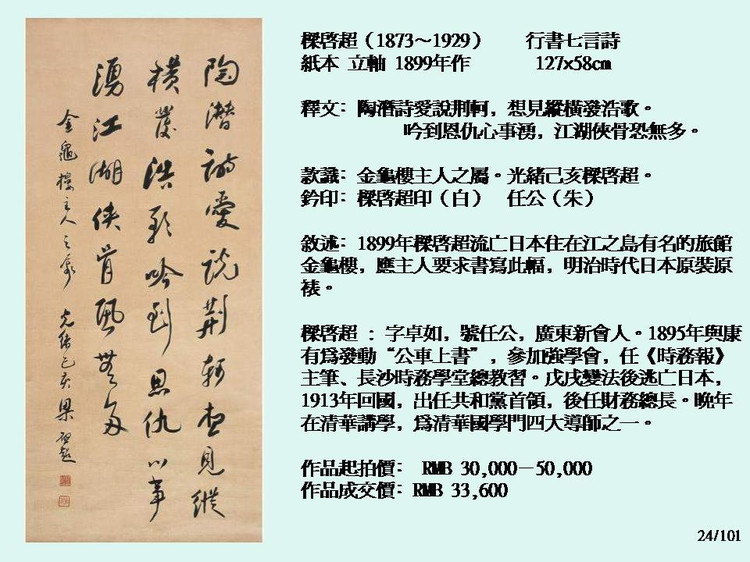 陶潛詩愛說荊軻想見縱
橫發浩歌吟到恩仇心事
湧江湖俠骨恐無多
金龜樓主人之屬 光緒己亥梁啓超
樑啓超（1873～1929） 行書七言詩
紙本 立軸 1899年作 127x58cm
釋文：陶潛詩愛說荆軻，想見縱橫發浩歌。
吟到恩仇心事湧，江湖俠骨恐無多。
款識：金龜樓主人之屬。光緒己亥樑啓超。
鈐印：樑啓超印（白） 任公（朱）
敘述：1899年樑啓超流亡日本住在江之島有名的旅館
金龜樓，應主人要求書寫此幅，明治時代日本原裝原
裱。
樑啓超 ：字卓如，號任公，廣東新會人。1895年與康
有爲發動“公車上書”，參加強學會，任《時務報》
主筆、長沙時務學堂總教習。戊戌變法後逃亡日本，
1913年回國，出任共和黨首領，後任財務總長。晚年
在清華講學，爲清華國學門四大導師之一。
作品起拍價： RMB 30,000－50,000
作品成交價：RMB 33,600
24/101